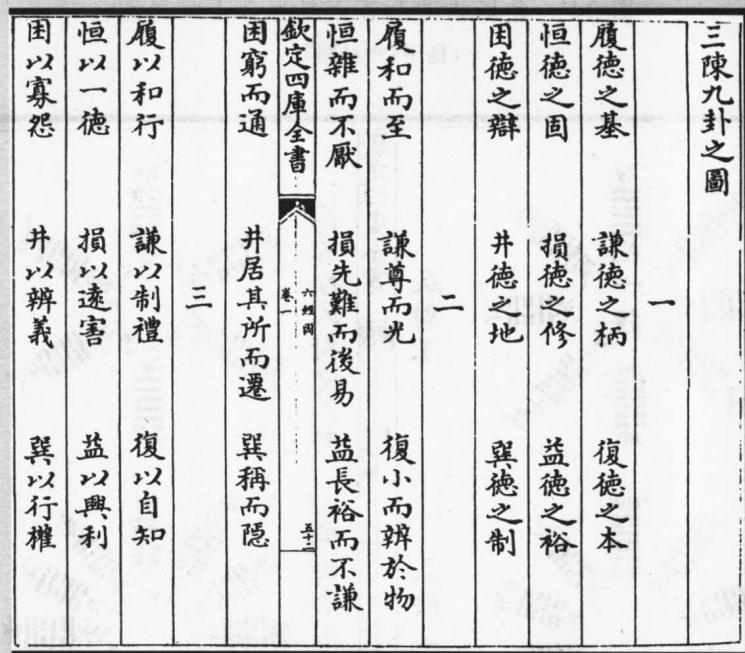 三陳九卦之圖
一
履德之基 謙德之柄 復德之本
恒德之固 損德之修 益德之裕
困德之辯 井德之地 巽德之制
二
履和而至 謙尊而光 復小而辨於物
恒雜而不厭 損先難而後易 益長裕而不謙
欽定四庫全書 六經圖 卷一 五十二
困窮而通 井居其所而遷 巽稱而隱
三
履以和行 謙以制禮 復以自知
恒以一德 損以遠害 益以興利
困以寡怨 井以辨義 巽以行權